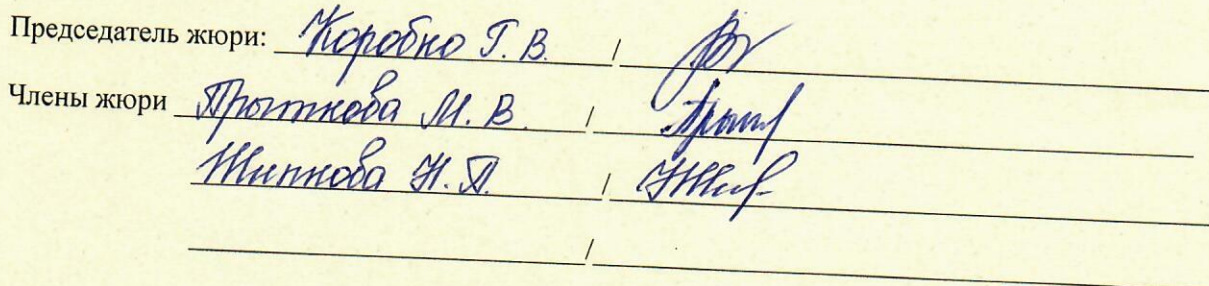 Председатель жюри: Коробко Г. В. /
Члены жюри Прыткова М. В. /
Жипкова Н. П. /
/